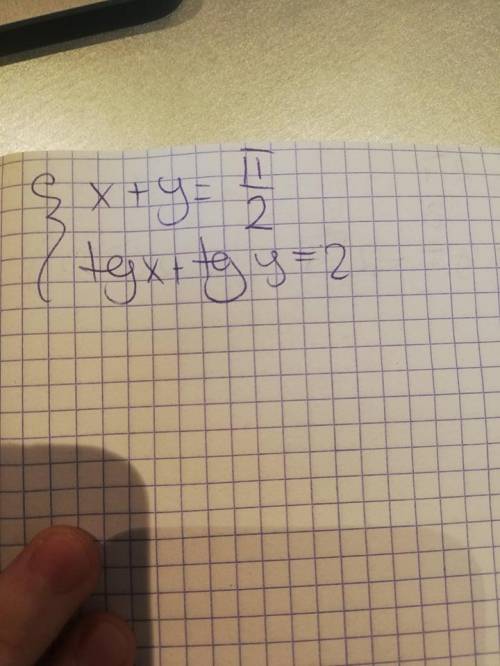 x + y = π/2
tg x + tg y = 2